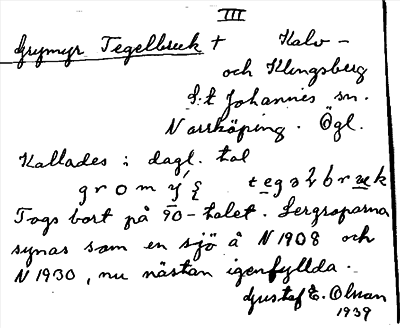 III
Grymyr Tegelbruk † Kalv-
och Klingsberg
S:t Johannes sn.
Norrköping. Ögl.
Kallades i dagl. tal
Togs bort på 90-talet. Lergroparna
synas som en sjö å N 1908 och
N 1930, nu nästan igenfyllda.
Gustaf E. Olsson
1939